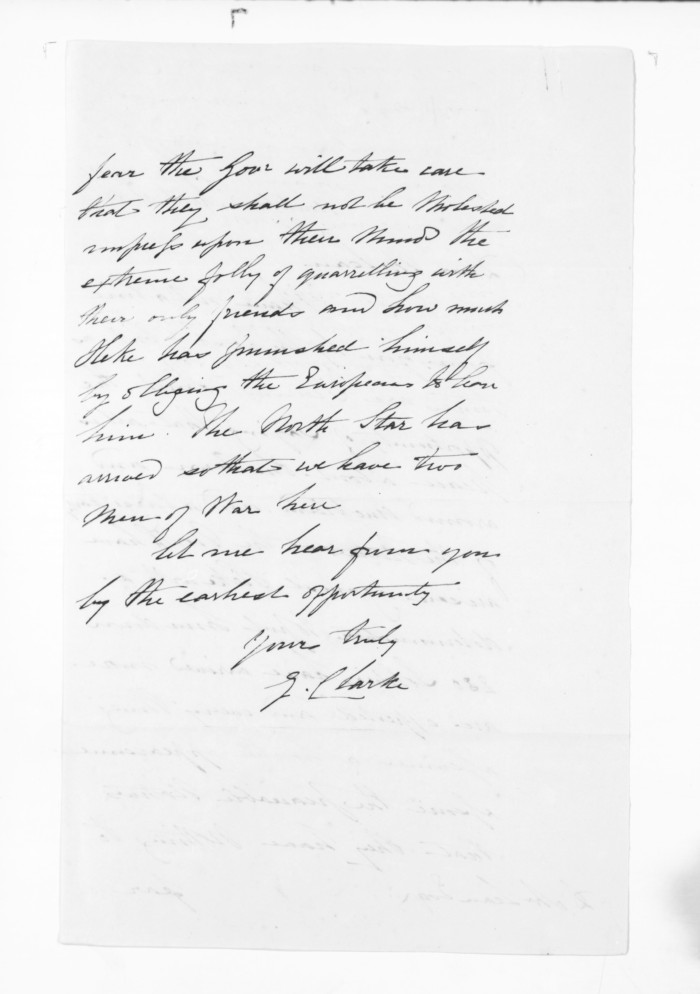 fear the Govr will take care
that they shall not be Molested
impress upon their Minds the
extreme folly of quarrelling with
their only friends and how much
Heke has punished himself
by obliging the Europeans to leave
him. The North Star has
arrived so that we have two
Men of War here
let me hear from you
by the earliest opportunity
Yours truly
G. Clarke